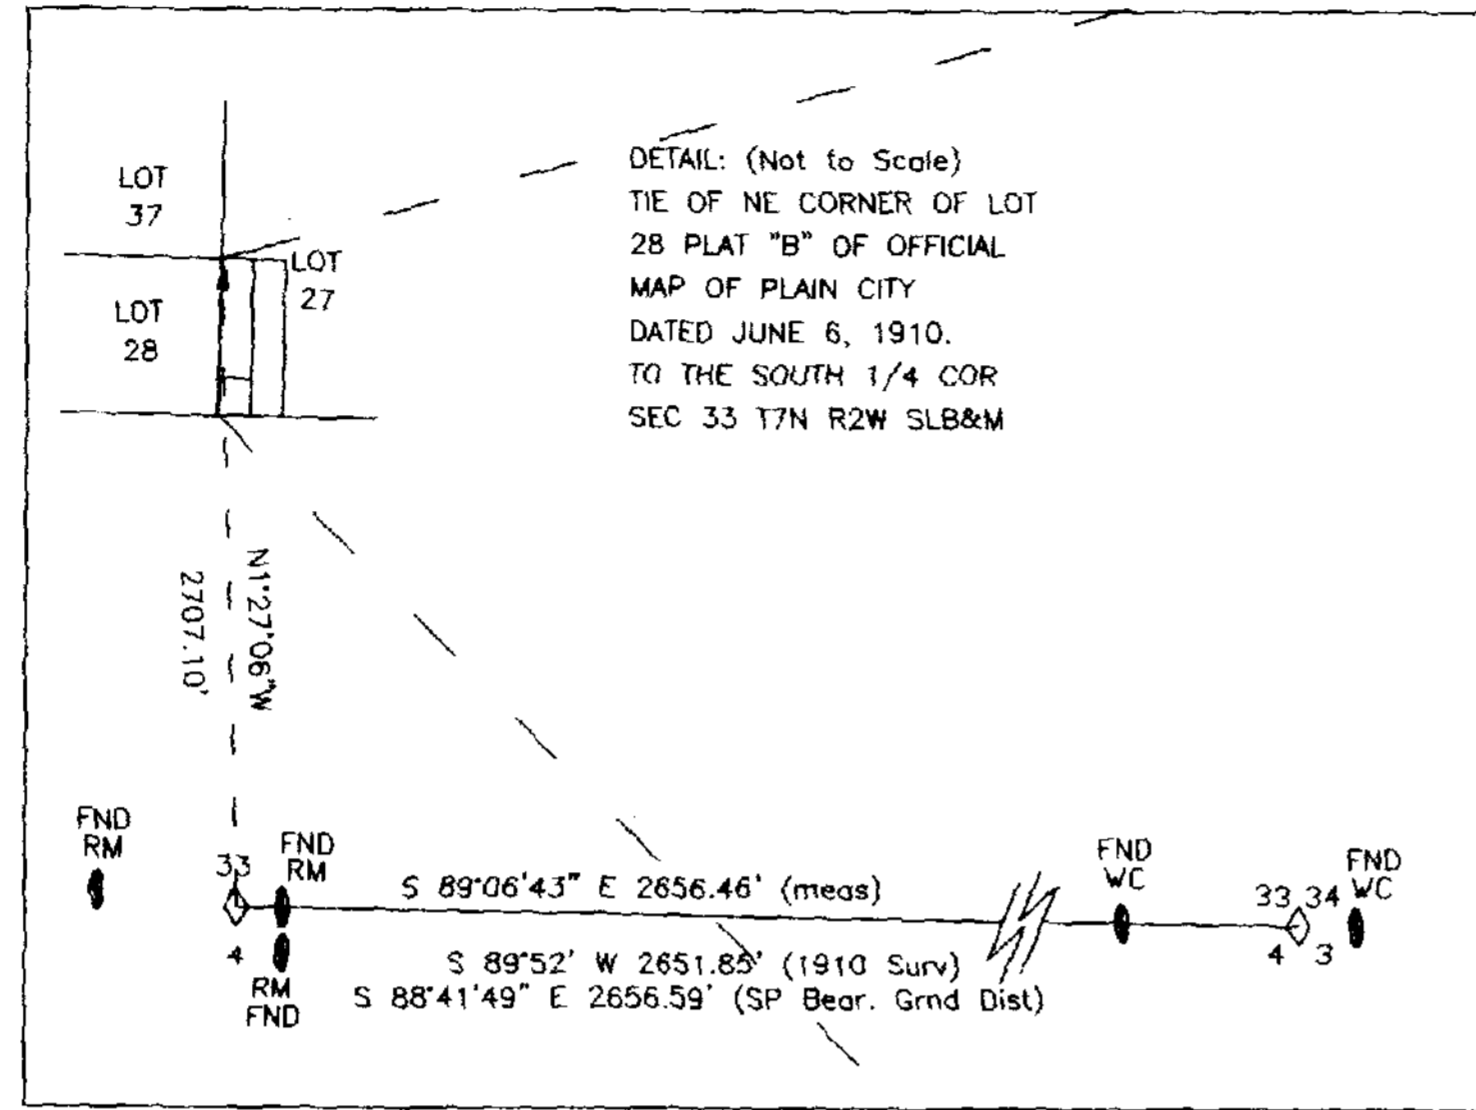 LOT
37
DETAIL: (Not to Scale)
TIE OF NE CORNER OF LOT
28 PLAT "B" OF OFFICIAL
MAP OF PLAIN CITY
DATED JUNE 6, 1910.
TO THE SOUTH 1/4 COR
SEC 33 T7N R2W SLB&M
LOT
27
LOT
28
N1°27'06"W
2707.10'
FND
RM
33
4
FND
RM
RM
FND
S 89°06'43" E 2656.46' (meas)
S 89°52' W 2651.85' (1910 Surv)
S 88°41'49" E 2656.59' (SP Bear. Grnd Dist)
FND
WC
33 34
4 3
FND
WC